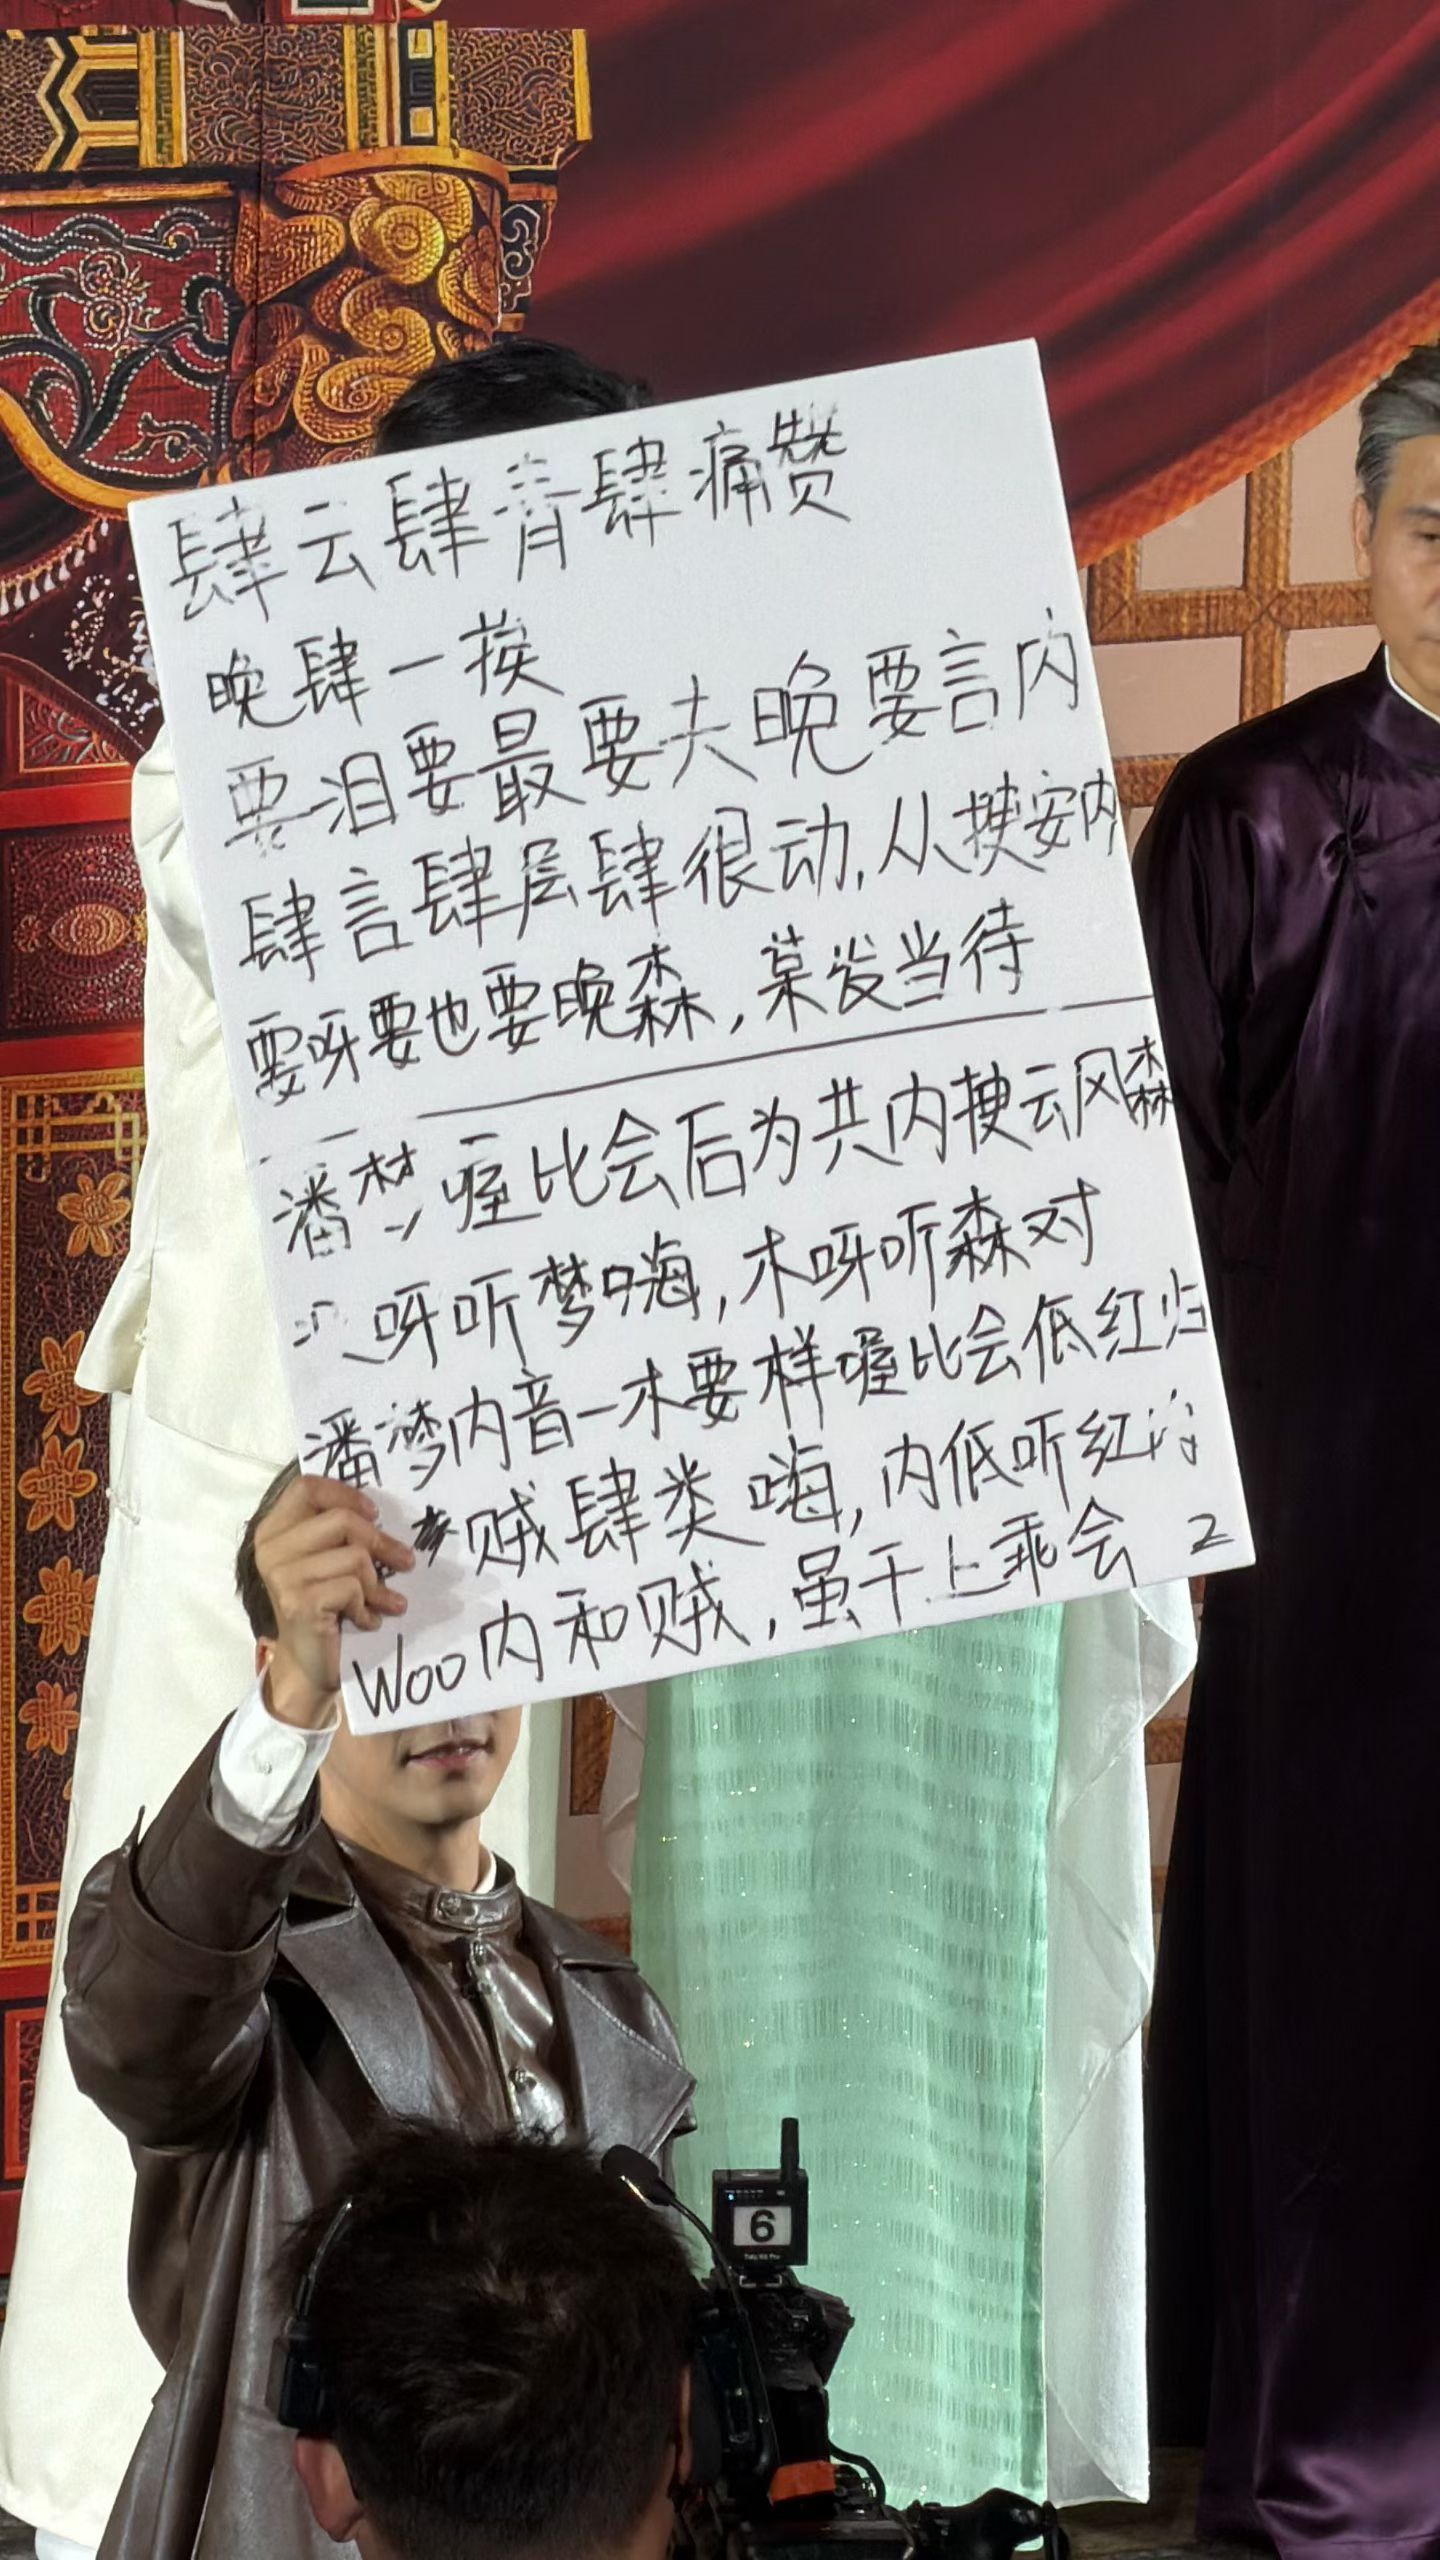 肆云肆青肆痛赞
晚肆一挨
要泪要最要夫晚要言内
肆言肆层肆很动,从挭安内
要呀要也要晚森,某发当待
潘梦喔比会后为共内挭云风森
呀听梦嗨,木呀听森对
潘梦内音一木要样喔比会低红归
贼肆类嗨,内低听红
Woo内和贼,虽干上乖会 2
6